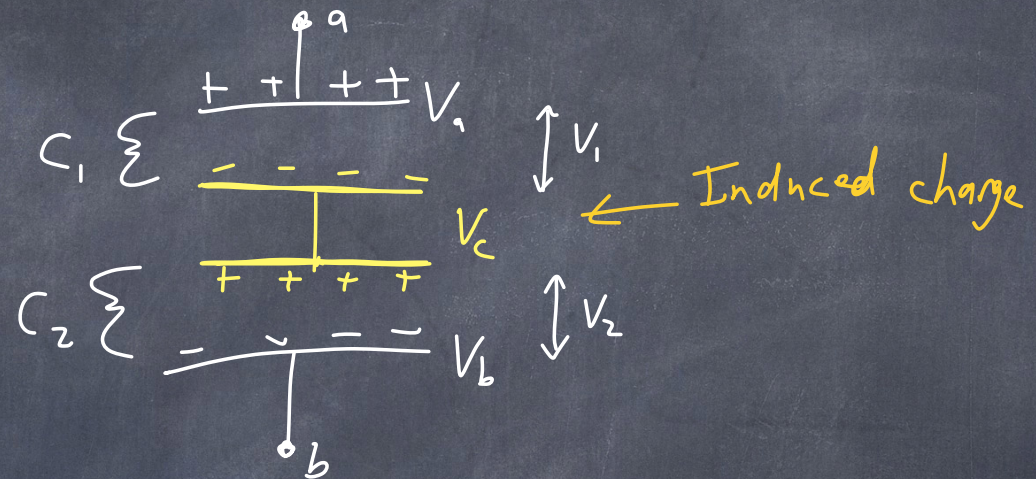 a
+ + + +
Va
C1 {
V1
- - - -
Induced charge
Vc
+ + + +
C2 {
V2
- - - -
Vb
b